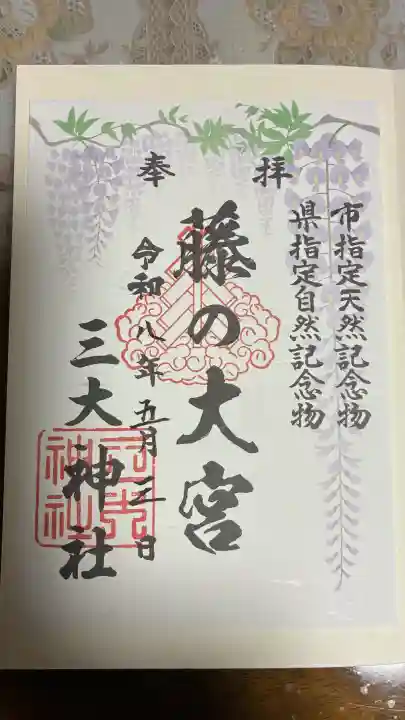 奉拝
市指定天然記念物
県指定自然記念物
藤の大宮
令和八年五月三日
三大神社